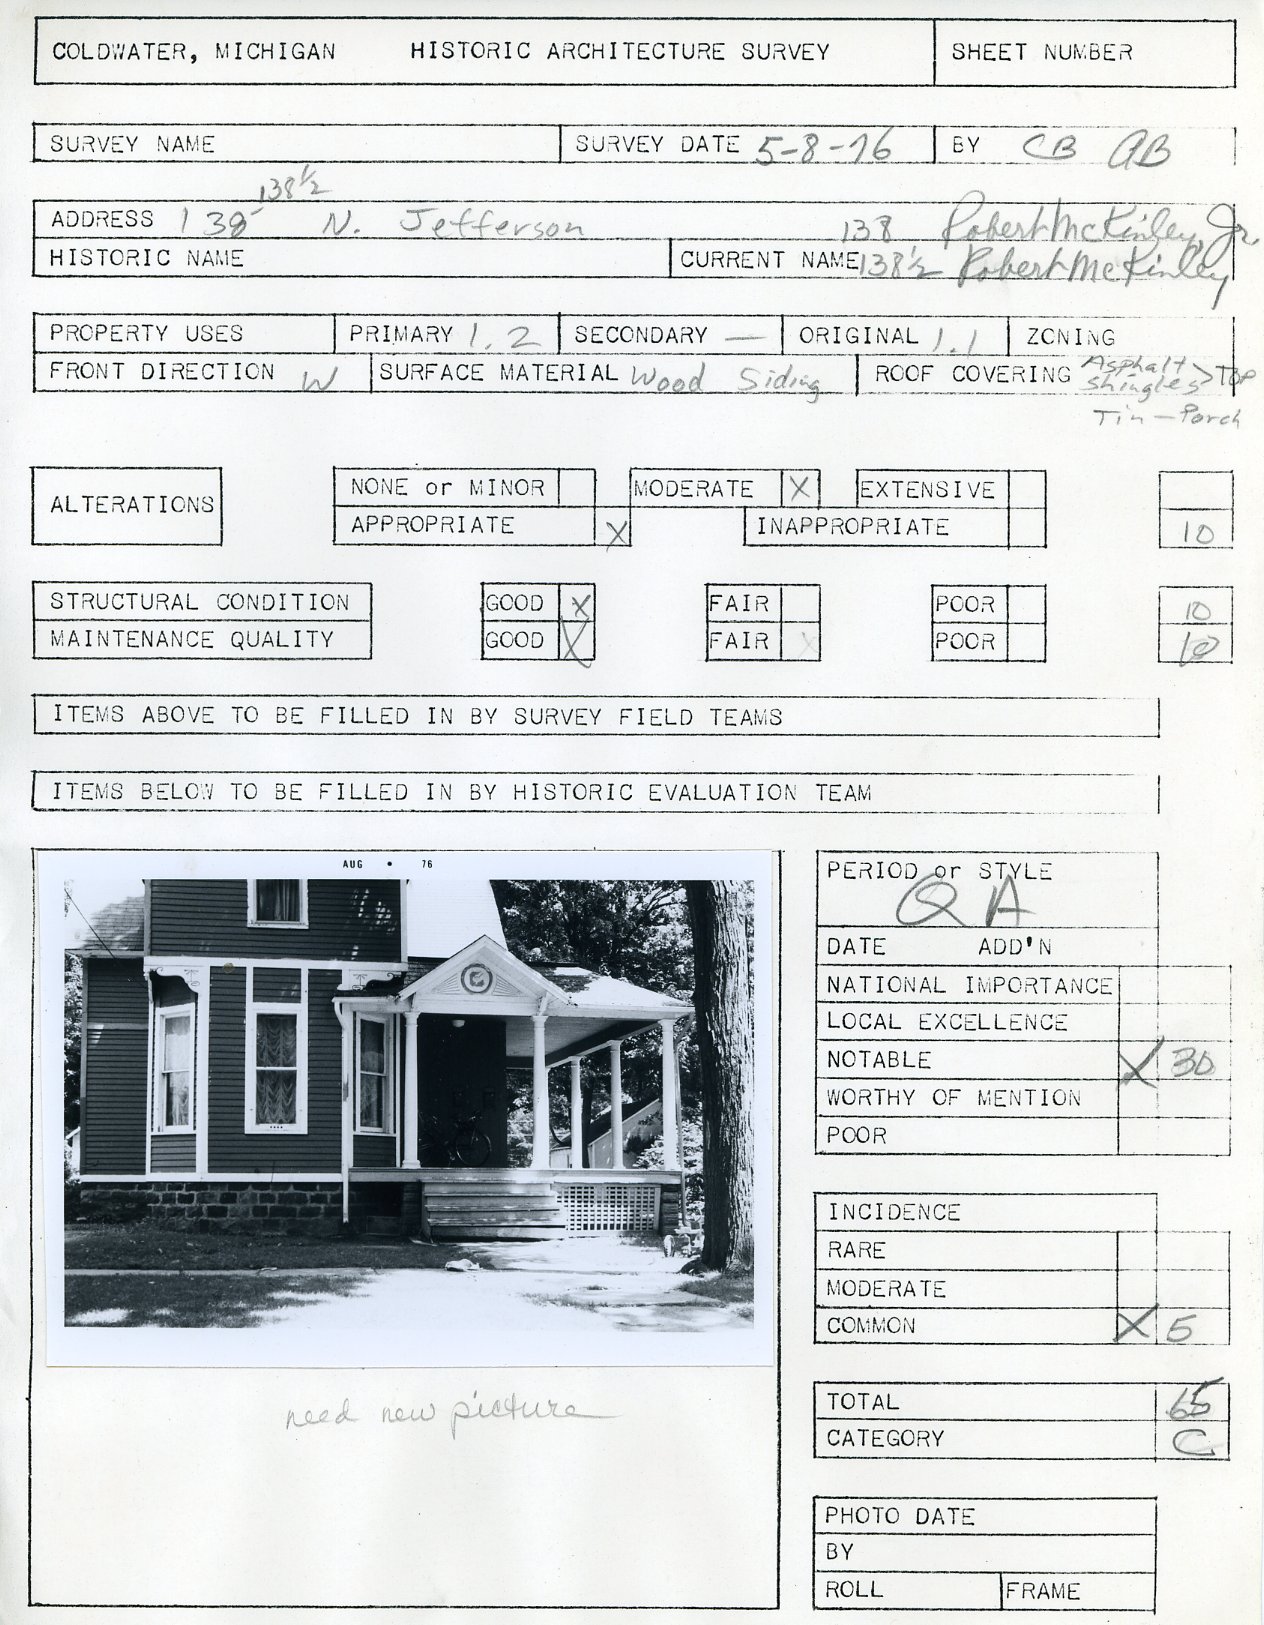 COLDWATER, MICHIGAN HISTORIC ARCHITECTURE SURVEY SHEET NUMBER
SURVEY NAME SURVEY DATE 5-8-76 BY CB AB
138½
ADDRESS 138 N. Jefferson 138 Robert McKinley, Jr.
HISTORIC NAME CURRENT NAME 138½ Robert McKinley
PROPERTY USES PRIMARY 1.2 SECONDARY — ORIGINAL 1.1 ZONING
FRONT DIRECTION W SURFACE MATERIAL Wood Siding ROOF COVERING Asphalt shingles > TOP
Tin - Porch
ALTERATIONS NONE or MINOR MODERATE X EXTENSIVE
APPROPRIATE X INAPPROPRIATE 10
STRUCTURAL CONDITION GOOD X FAIR POOR 10
MAINTENANCE QUALITY GOOD X FAIR X POOR 10
ITEMS ABOVE TO BE FILLED IN BY SURVEY FIELD TEAMS
ITEMS BELOW TO BE FILLED IN BY HISTORIC EVALUATION TEAM
AUG • 76
need new picture
PERIOD or STYLE
QA
DATE ADD'N
NATIONAL IMPORTANCE
LOCAL EXCELLENCE
NOTABLE X 30
WORTHY OF MENTION
POOR
INCIDENCE
RARE
MODERATE
COMMON X 5
TOTAL 65
CATEGORY C
PHOTO DATE
BY
ROLL FRAME